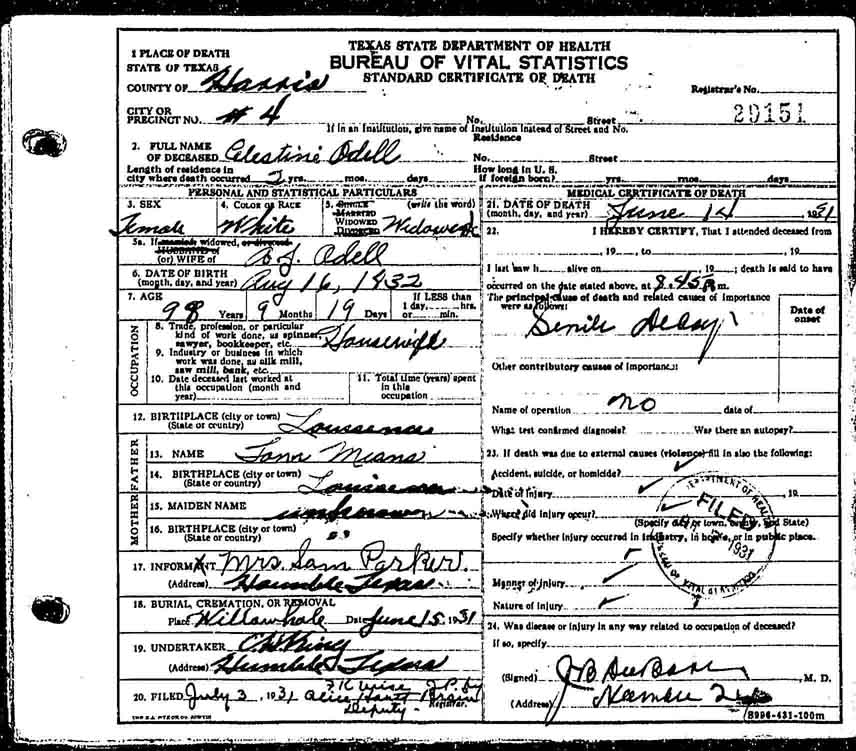 TEXAS STATE DEPARTMENT OF HEALTH
BUREAU OF VITAL STATISTICS
STANDARD CERTIFICATE OF DEATH
1 PLACE OF DEATH
STATE OF TEXAS
COUNTY OF Harris
Registrar's No.
CITY OR PRECINCT NO. # 4 No. Street 29151
If in an Institution, give name of Institution instead of Street and No.
2. FULL NAME OF DECEASED Celestine Odell
Residence No. Street
Length of residence in city where death occurred 2 yrs. mos. days
How long in U. S. if foreign born? yrs. mos. days
PERSONAL AND STATISTICAL PARTICULARS
3. SEX Female
4. COLOR OR RACE White
5. SINGLE MARRIED WIDOWED DIVORCED (write the word) Widowed
5a. If married, widowed, or divorced
HUSBAND of (or) WIFE OF Odell
6. DATE OF BIRTH (month, day, and year) Aug 16, 1832
7. AGE 98 Years 9 Months 19 Days
If LESS than 1 day, hrs. or min.
OCCUPATION
8. Trade, profession, or particular kind of work done, as spinner, sawyer, bookkeeper, etc. Housewife
9. Industry or business in which work was done, as silk mill, saw mill, bank, etc.
10. Date deceased last worked at this occupation (month and year)
11. Total time (years) spent in this occupation
12. BIRTHPLACE (city or town) (State or country)
FATHER
13. NAME Means
14. BIRTHPLACE (city or town) (State or country)
MOTHER
15. MAIDEN NAME unknown
16. BIRTHPLACE (city or town) (State or country) "
17. INFORMANT Mrs. Sam Parker
(Address) Humble Texas
18. BURIAL, CREMATION, OR REMOVAL
Place Date June 15 1931
19. UNDERTAKER
(Address) Humble Texas
20. FILED July 3, 1931 J.P. by
Deputy Registrar.
MEDICAL CERTIFICATE OF DEATH
21. DATE OF DEATH (month, day, and year) June 14 1931
22. I HEREBY CERTIFY, That I attended deceased from
, 19 , to , 19
I last saw h alive on , 19 ; death is said to have
occurred on the date stated above, at 8:45 m.
The principal cause of death and related causes of importance were as follows:
Date of onset
Senile Decay
Other contributory causes of importance:
Name of operation no date of
What test confirmed diagnosis? Was there an autopsy?
23. If death was due to external causes (violence) fill in also the following:
Accident, suicide, or homicide?
Date of injury , 19
Where did injury occur?
(Specify city or town, county, and State)
Specify whether injury occurred in industry, in home, or in public place.
Manner of injury
Nature of injury
FILED
1931
24. Was disease or injury in any way related to occupation of deceased?
If so, specify
(Signed) , M. D.
(Address)
S996-431-100m